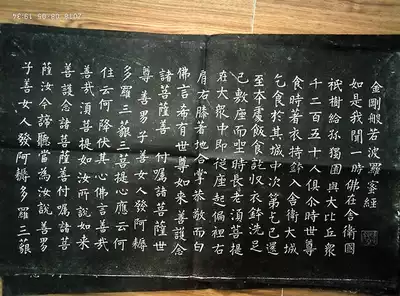 金剛般若波羅蜜經
如是我聞一時佛在舍衛國
祇樹給孤獨園與大比丘衆
千二百五十人俱尒時世尊
食時著衣持鉢入舍衛大城
乞食於其城中次第乞已還
至本處飯食訖収衣鉢洗足
已敷座而坐時長老湏菩提
在大衆中即從座起偏袒右
肩右膝著地合掌恭敬而白
佛言希有世尊如来善護念
諸菩薩善付嘱諸菩薩世
尊善男子善女人發阿耨
多羅三藐三菩提心應云何
住云何降伏其心佛言善哉
善哉湏菩提如汝所說如来
善護念諸菩薩善付嘱諸菩
薩汝今諦聽當為汝說善男
子善女人發阿耨多羅三藐